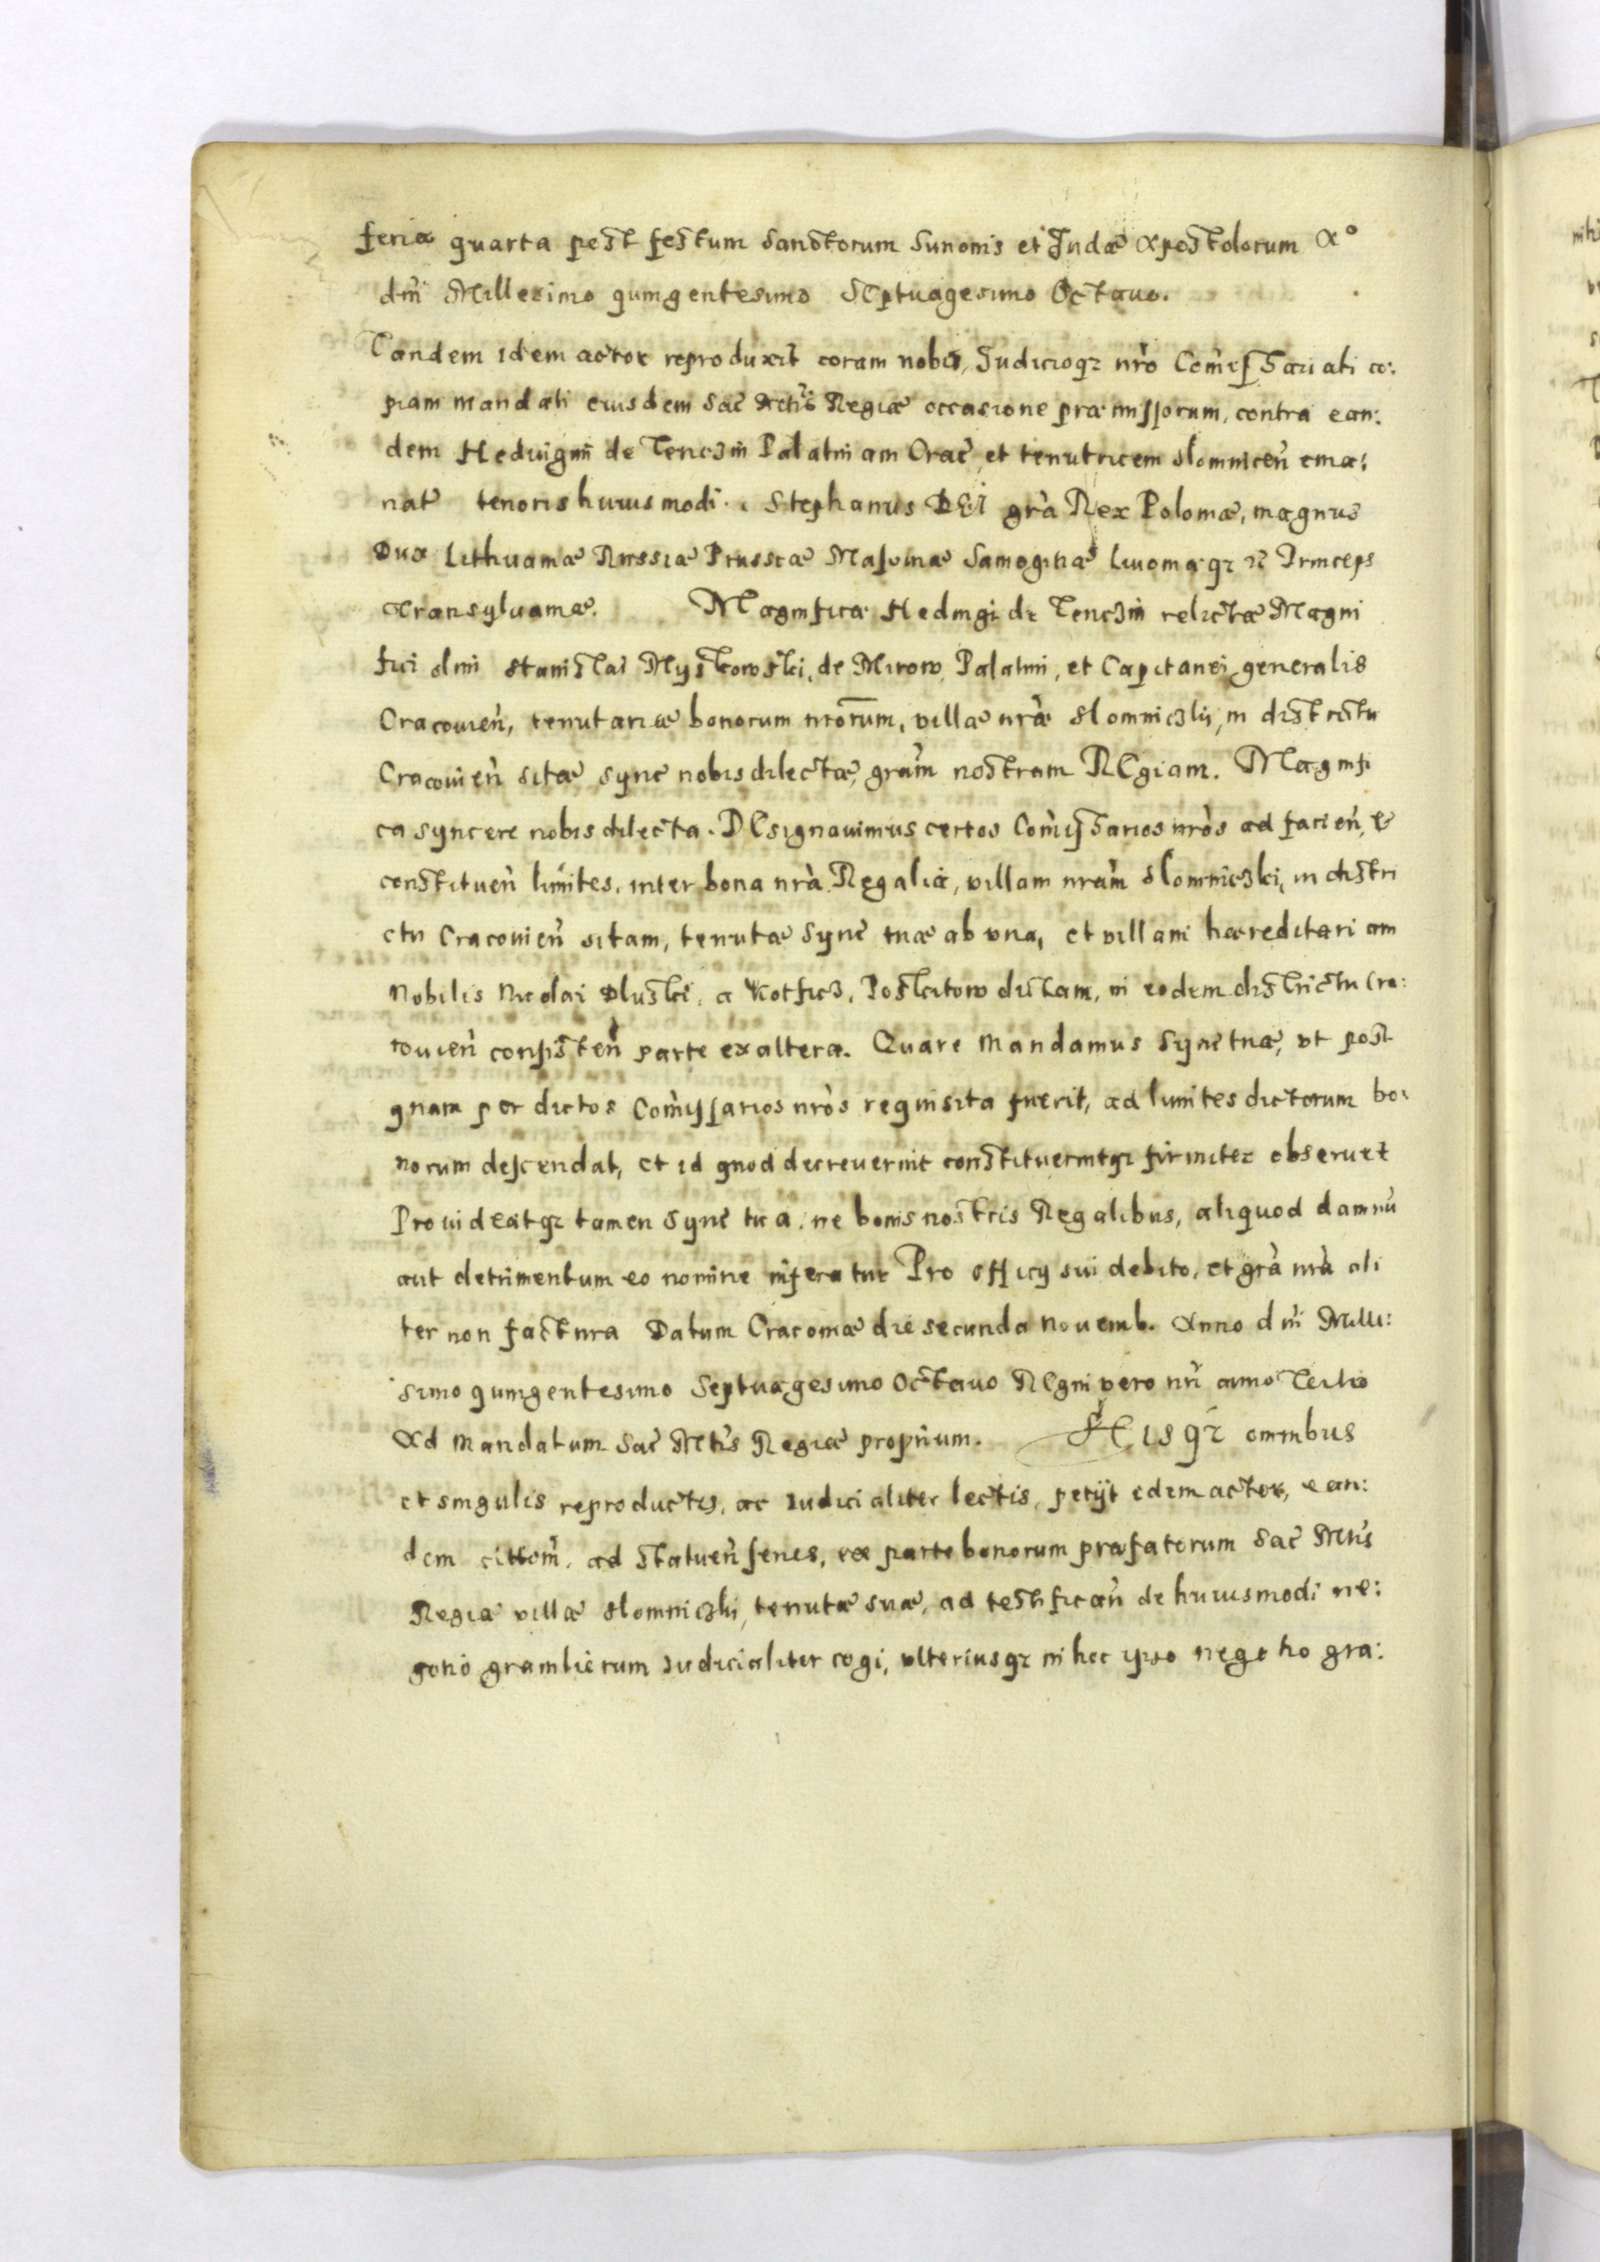 feria quarta post festum Sanctorum Simonis et Judæ Apostolorum A°
dni Millesimo quingentesimo Septuagesimo Octavo.
Tandem idem actor reproduxit coram nobis, Judicioqz nrõ Comissariali co:
piam mandati eiusdem Sac Mtis Regiæ occasione præmissorum, contra ean:
dem Heduigim de Tenczin Palatinam Crac et tenutricem slomnicen ema:
nat tenoris huiusmodi. Stephanus DEI gra Rex Poloniæ, magnus
Dux Lithuaniæ Russiæ Prussiæ Masouiæ Samogitiæ liuoniæqz Princeps
Transyluaniæ. Magnificæ Heduigi de Tenczin relictæ Magni
fici olim Stanislai Myskowski, de Mirow, Palatini, et Capitanei generalis
Cracouien, tenutariæ bonorum nrorum, villæ nræ slomniczki, in districtu
Cracouien sitæ sync nobis dilectæ, gram nostram REgiam. Magnifi
ca syncere nobis dilecta. DEsignauimus certos Comissarios nros ad facien, &
constituen limites, inter bona nra Regalia, villam nram slomniczki, in distri
ctu Cracouien sitam, tenutæ sync tuæ ab vna, et villam hæreditariam
Nobilis Nicolai Dluski, a Kotficz, Poskitow dictam, in eodem districtu Cra:
couien consisten parte ex altera. Quare mandamus sync tuæ, vt post
quam per dictos Comissarios nros requisita fuerit, ad limites dictorum bo:
norum descendat, et id quod decreuerint constituerintqz firmiter obseruet
Prouideatqz tamen sync tua, ne bonis nostris Regalibus, aliquod damnu
aut detrimentum eo nomine inferatur Pro officy sui debito, et gra nra ali
ter non factura Datum Cracouiæ die secunda nouemb. Anno dni Mille:
simo quingentesimo Septuagesimo Octauo REgni vero nri anno Tertio
Ad mandatum Sac Mtis Regiæ proprium. Hisqz omnibus
et singulis reproductis, ac iudicialiter lectis, petijt idem actor, ean:
dem citom, ad statuen senes, ex parte bonorum præfatorum Sac Mtis
Regiæ villæ slomniczki, tenutæ suæ, ad testifican de huiusmodi ne:
gotio granicierum iudicialiter cogi, vlteriusqz in hoc ipso negotio gra: